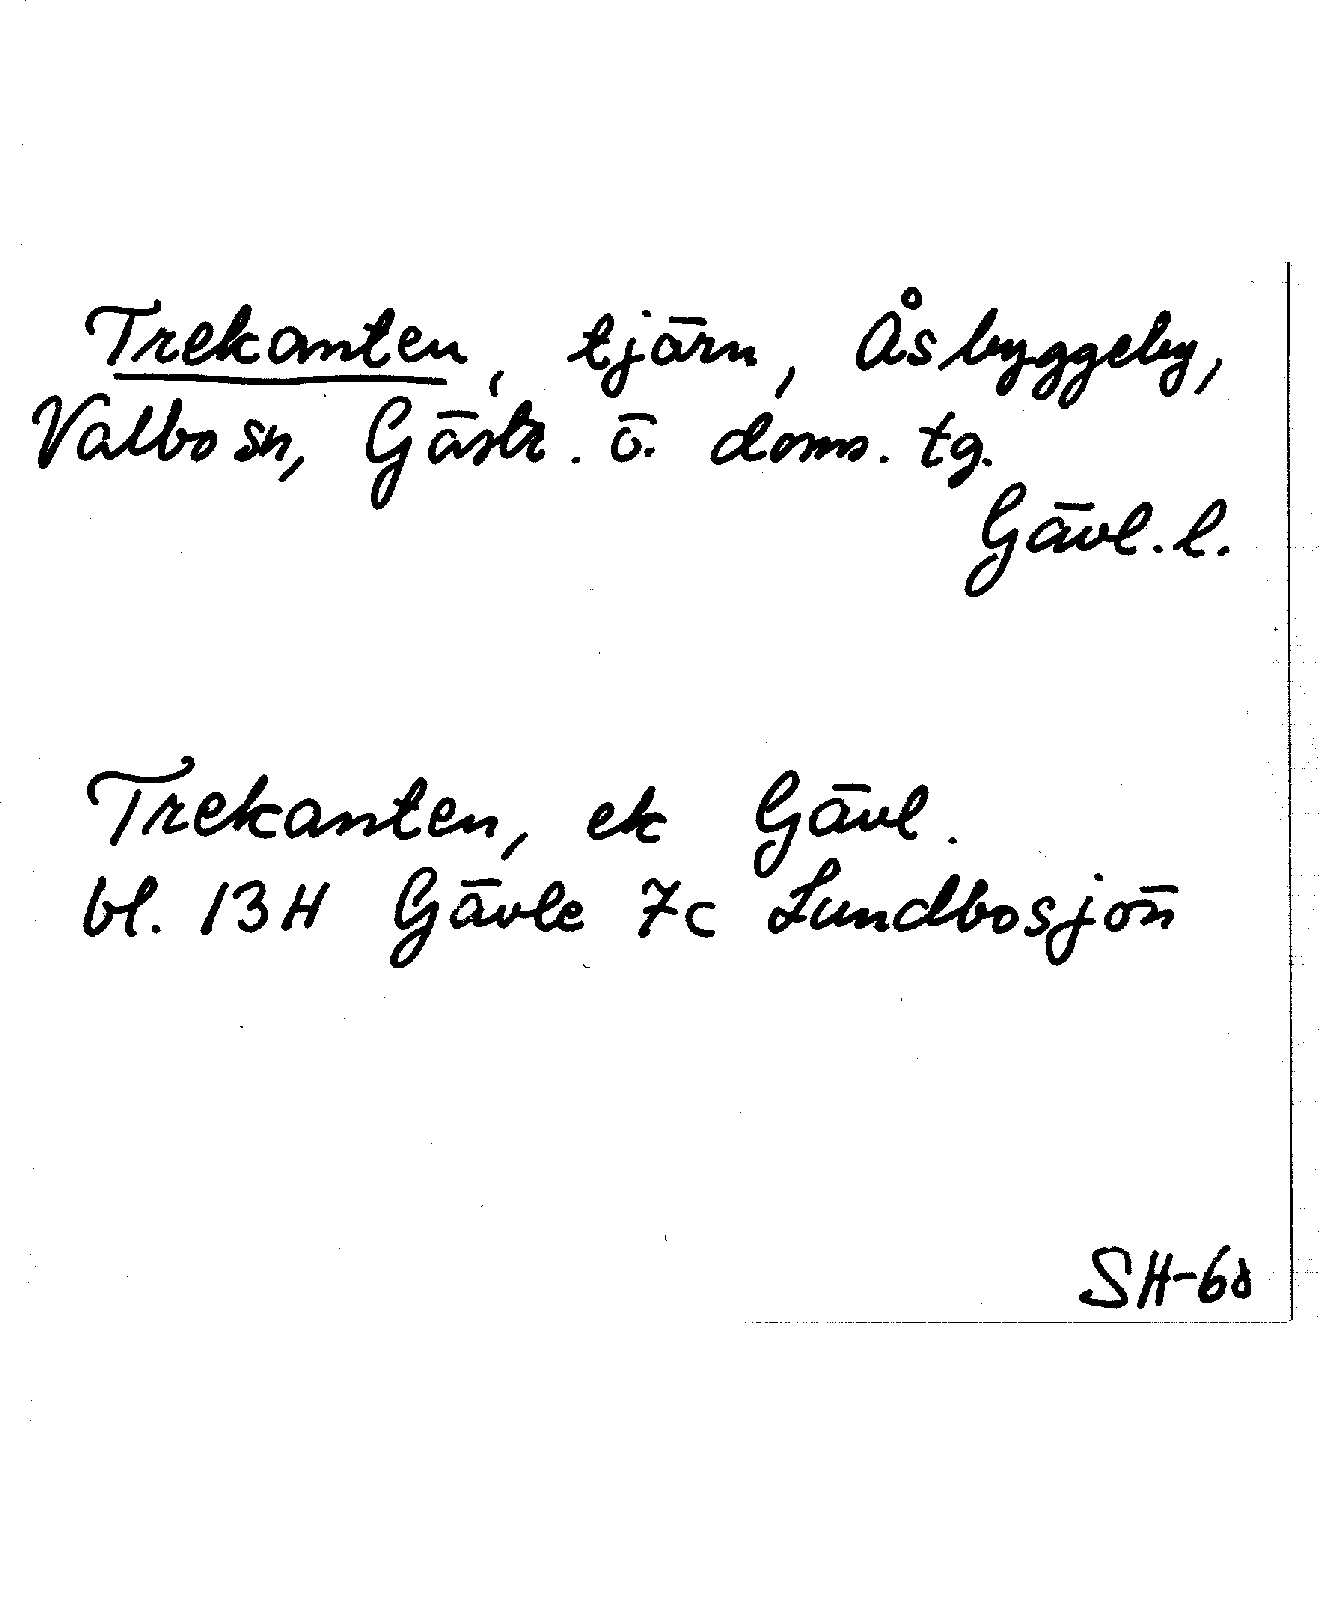 Trekanten, tjärn, Åsbyggeby,
Valbo sn, Gästr. ö. doms. tg.
Gävl. l.
Trekanten, ek Gävl.
bl. 13H Gävle 7c Lundbosjön
SH-68